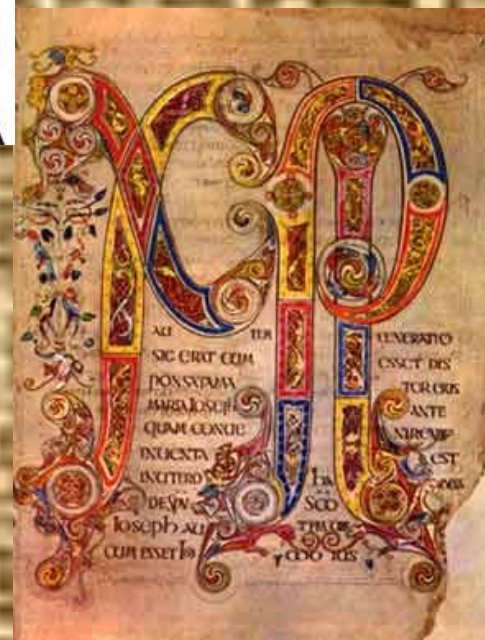 XP
AU TEM GENERATIO
SIC ERAT CUM ESSET DES
PONSATAMA TER EIUS
MARIA IOSEPH ANTE
QUAM CONUE NIRENT
INUENTA EST
INUTERO
DESPU SCO
Ioseph AU
CUM ESSET